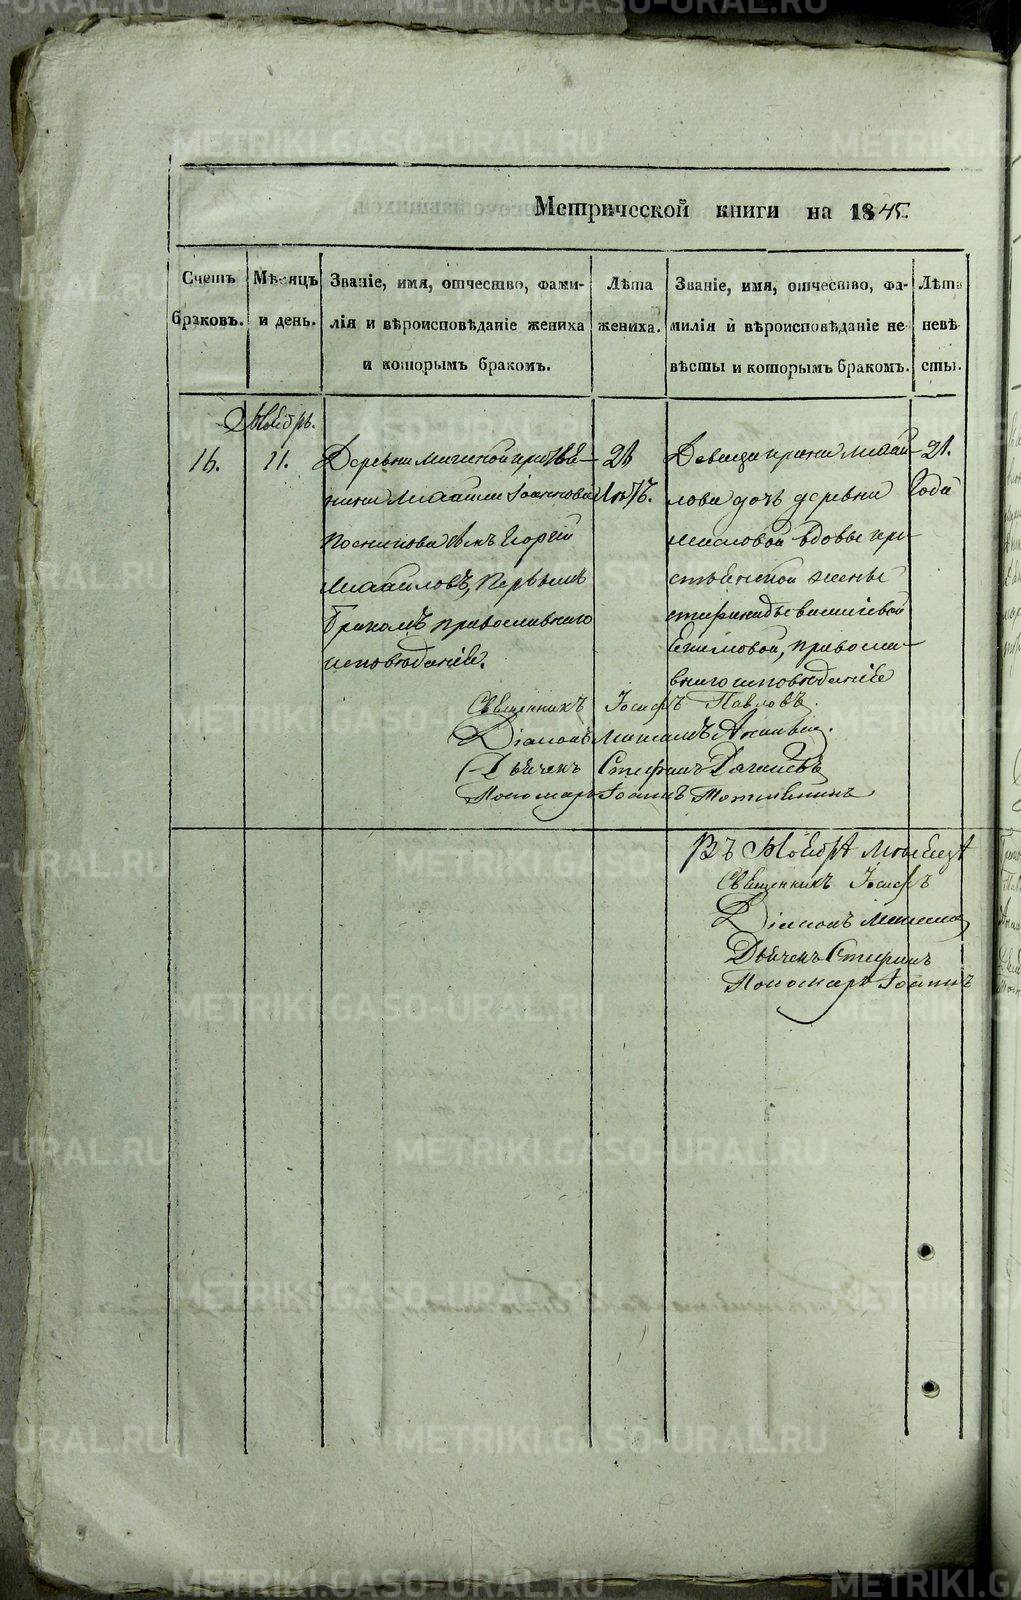 Метрической книги на 1845.
Счетъ браковъ.
Мѣсяцъ и день.
Званіе, имя, отчество, фами-
лія и вѣроисповѣданіе жениха
и которымъ бракомъ.
Лѣта
жениха.
Званіе, имя, отчество, фа-
милія и вѣроисповѣданіе не
вѣсты и которымъ бракомъ.
Лѣта
невѣ
сты.
Ноябрь.
16.
11.
Деревни
Михаила Іоаннова
сынъ Георгій
Михайловъ, первымъ
бракомъ православнаго
исповѣданія.
21
лѣтъ.
Девица Михаи-
лова дочь деревни
Масловой вдовы кре-
стьянской жены
православ-
наго исповѣданія
21.
года
Священникъ Іосифъ Павловъ.
Діаконъ Михаилъ
Дьячекъ Стефанъ
Пономарь Іоаннъ
Въ Ноябрѣ мѣсяцѣ
Священникъ Іосифъ
Діаконъ Михаилъ
Дьячекъ Стефанъ
Пономарь Іоаннъ
METRIKI.GASO-URAL.RU